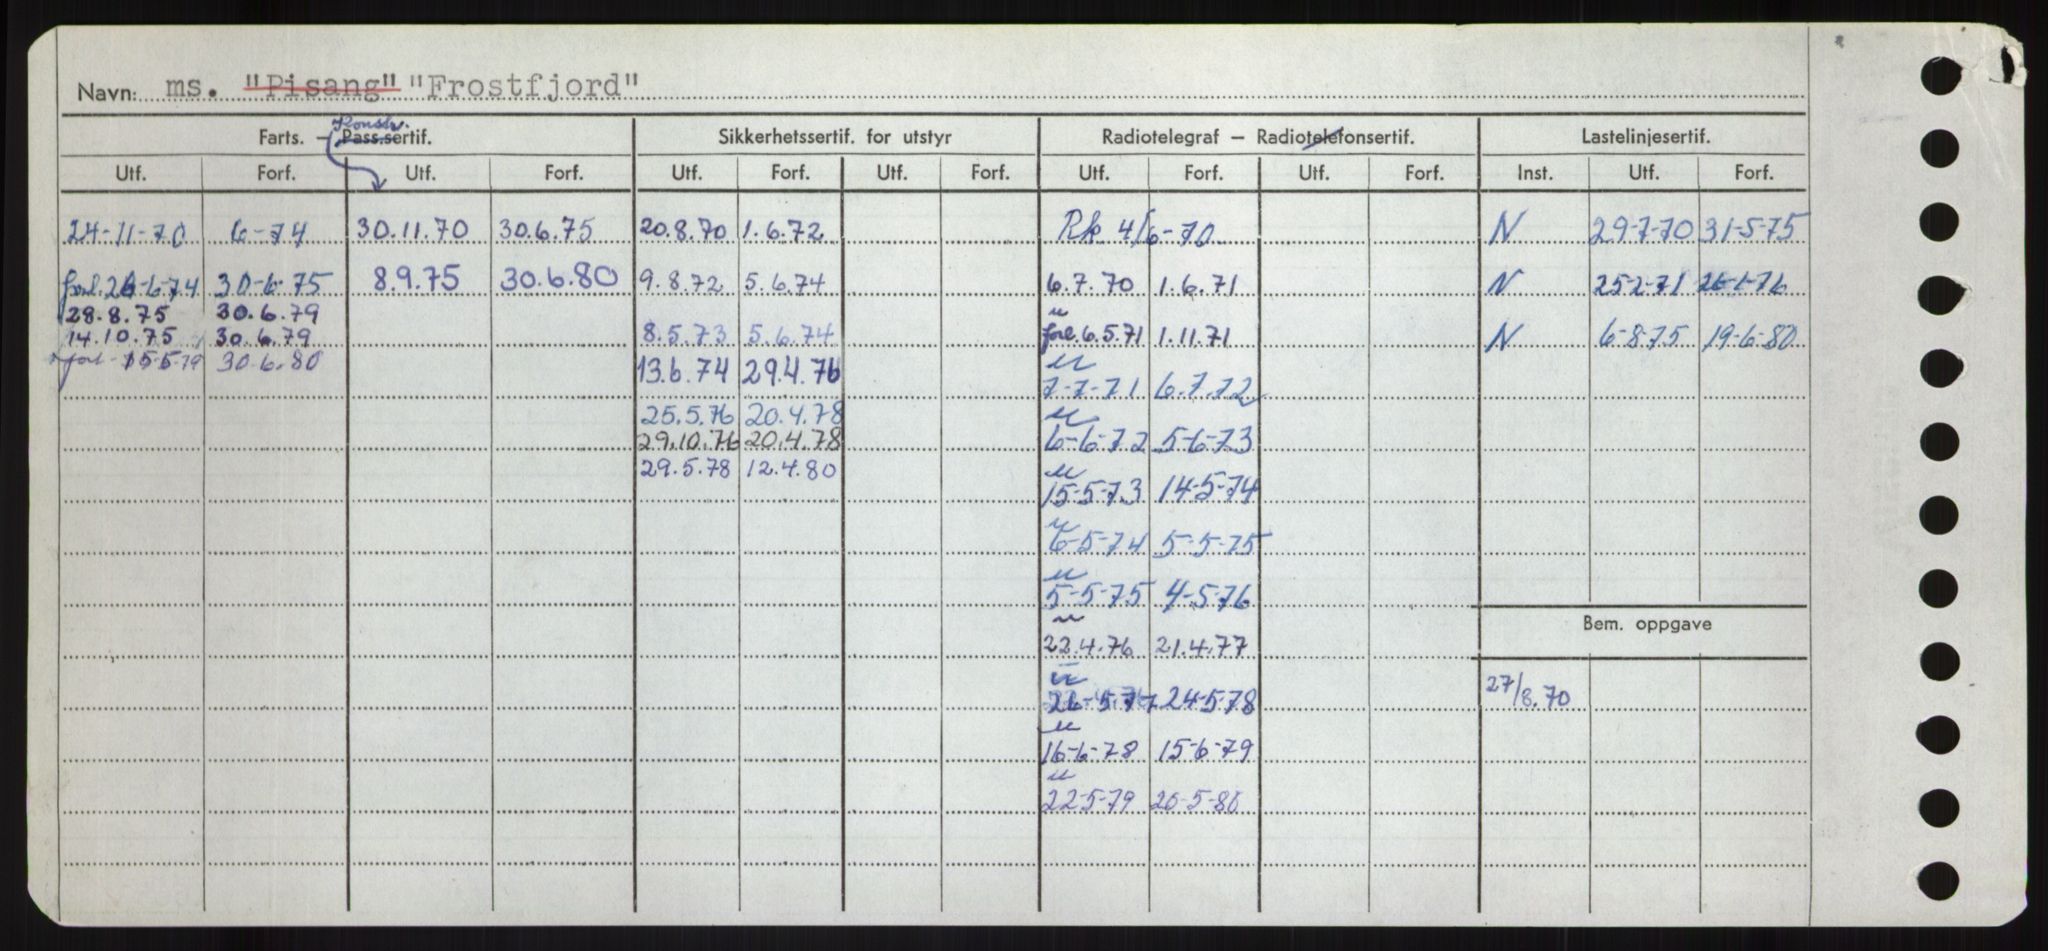 Navn: ms. "Pisang" "Frostfjord"
Konstr.
Farts. — Pass.sertif. Sikkerhetssertif. for utstyr Radiotelegraf — Radiotelefonsertif. Lastelinjesertif.
Utf. Forf. Utf. Forf. Utf. Forf. Utf. Forf. Utf. Forf. Utf. Forf. Inst. Utf. Forf.
24-11-70 6-74 30.11.70 30.6.75 20.8.70 1.6.72 Rk 4/6-70 N 29-7-70 31-5-75
forl. 26-6-74 30-6-75 8.9.75 30.6.80 9.8.72 5.6.74 6.7.70 1.6.71 N 25-2-71 26-1-76
28.8.75 30.6.79
14.10.75 30.6.79 8.5.73 5.6.74 forl. 6.5.71 1.11.71 N 6-8-75 19-6-80
forl - 15-5-79 30.6.80 13.6.74 29.4.76
7-7-71 6.7.72
25.5.76 20.4.78
29.10.76 20.4.78 6-6-72 5-6-73
29.5.78 12.4.80
15-5-73 14-5-74
6-5-74 5-5-75
5-5-75 4-5-76
Bem. oppgave
22.4.76 21.4.77
26-5-77 24-5-78 27/8.70
16-6-78 15-6-79
22-5-79 20-5-80